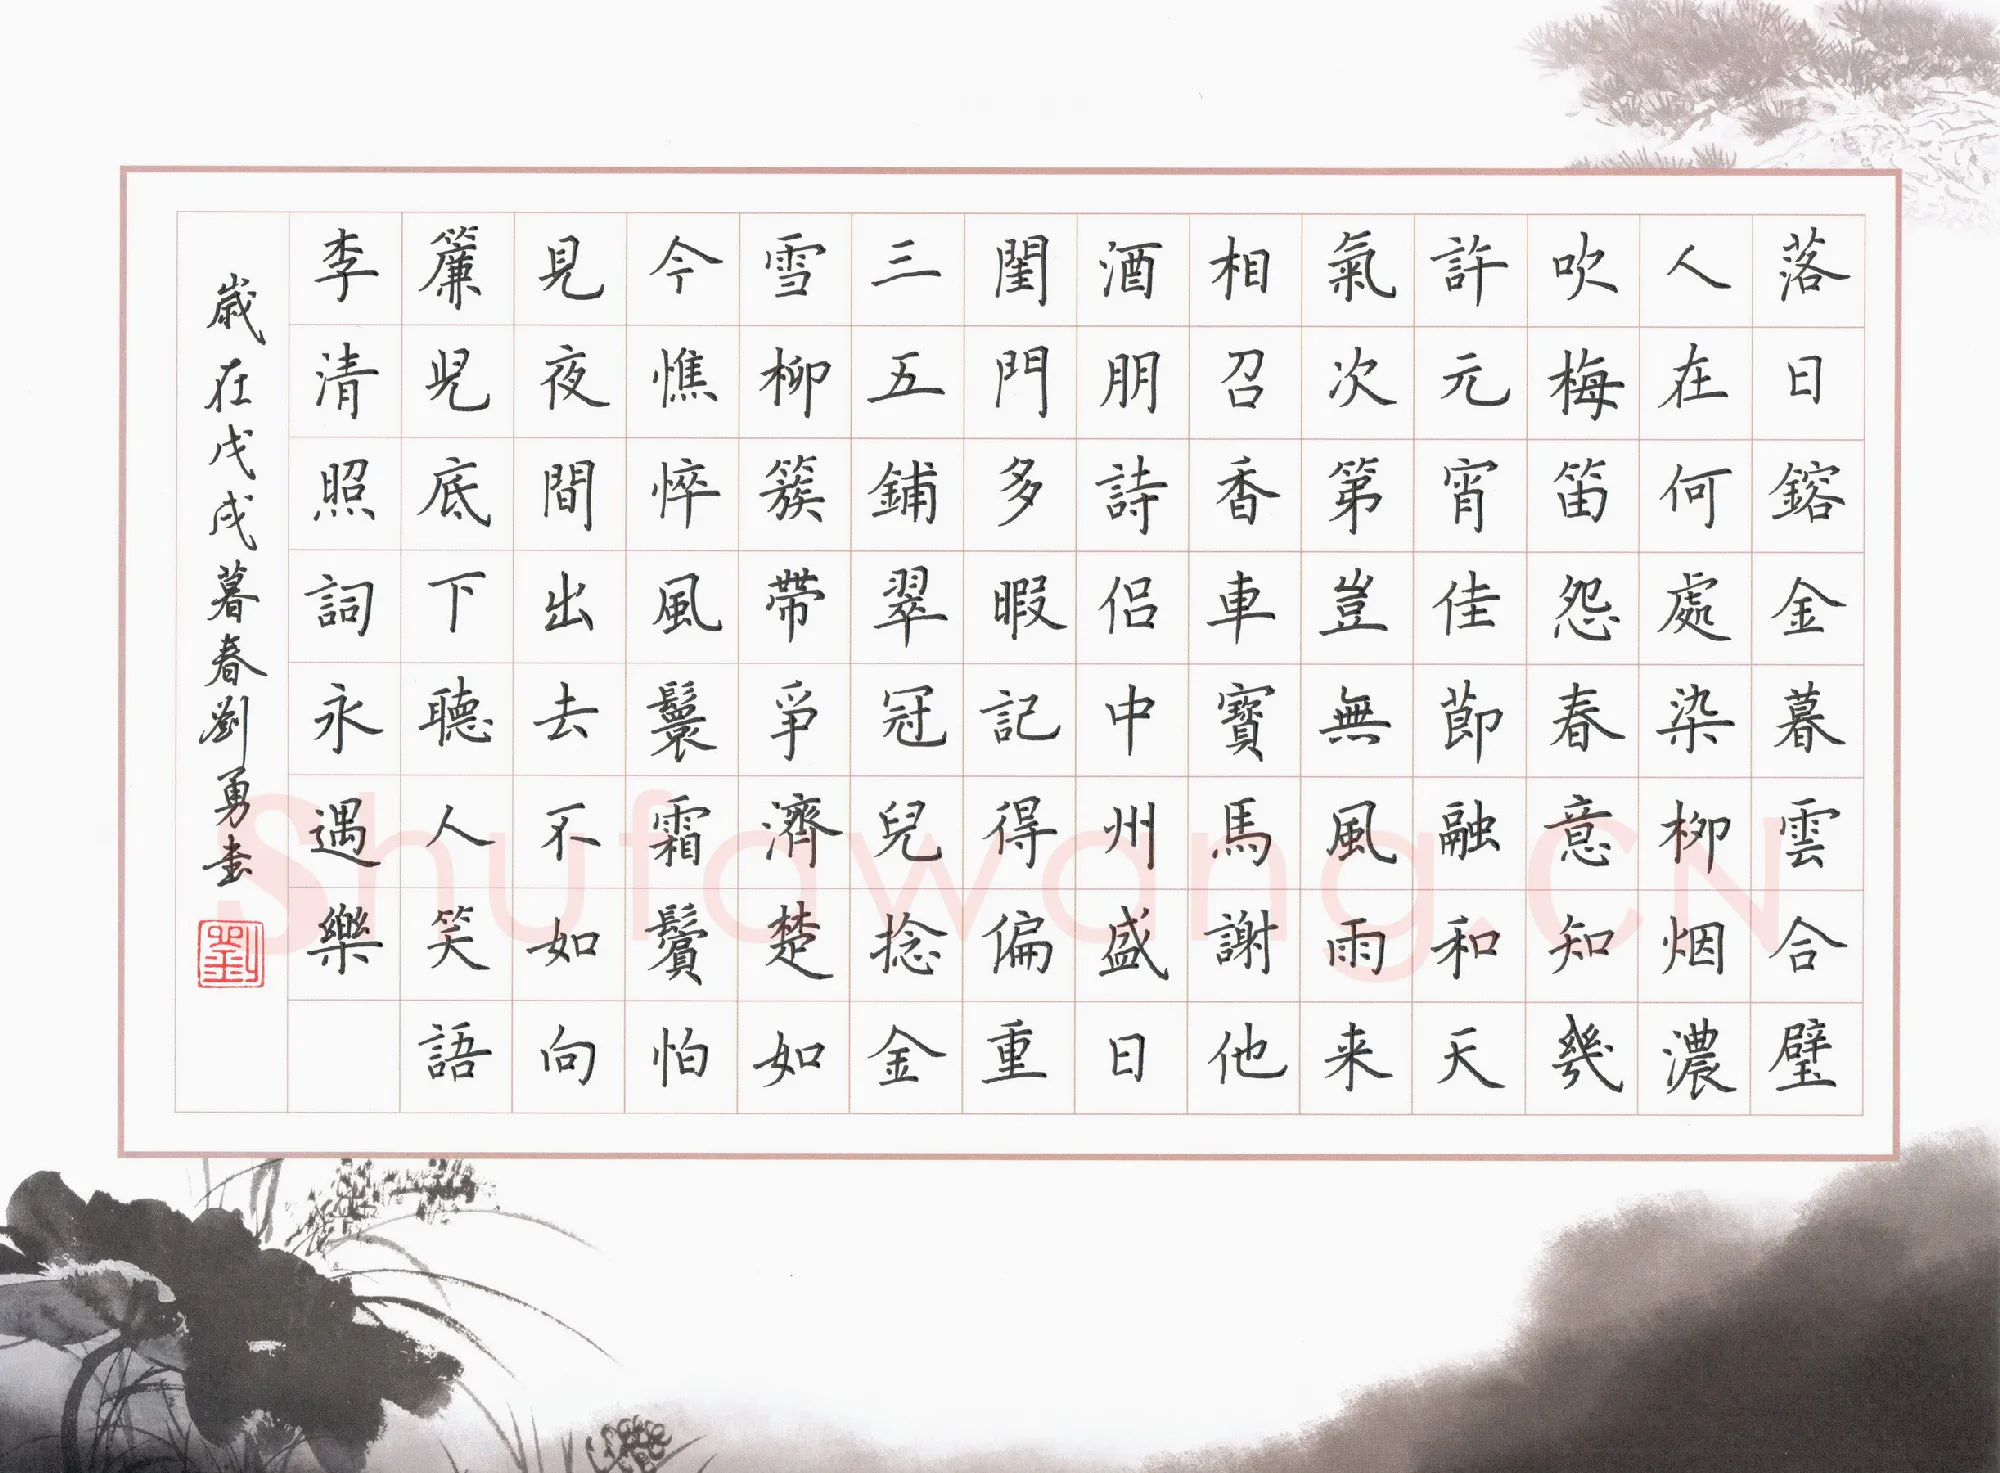 落日鎔金暮雲合璧
人在何處染柳烟濃
吹梅笛怨春意知幾
許元宵佳節融和天
氣次第豈無風雨来
相召香車寶馬謝他
酒朋詩侣中州盛日
閨門多暇記得偏重
三五鋪翠冠兒捻金
雪柳簇帶爭濟楚如
今憔悴風鬟霜鬢怕
見夜間出去不如向
簾兒底下聽人笑語
李清照詞永遇樂
歲在戊戌暮春劉勇書
劉
Shufawang.CN